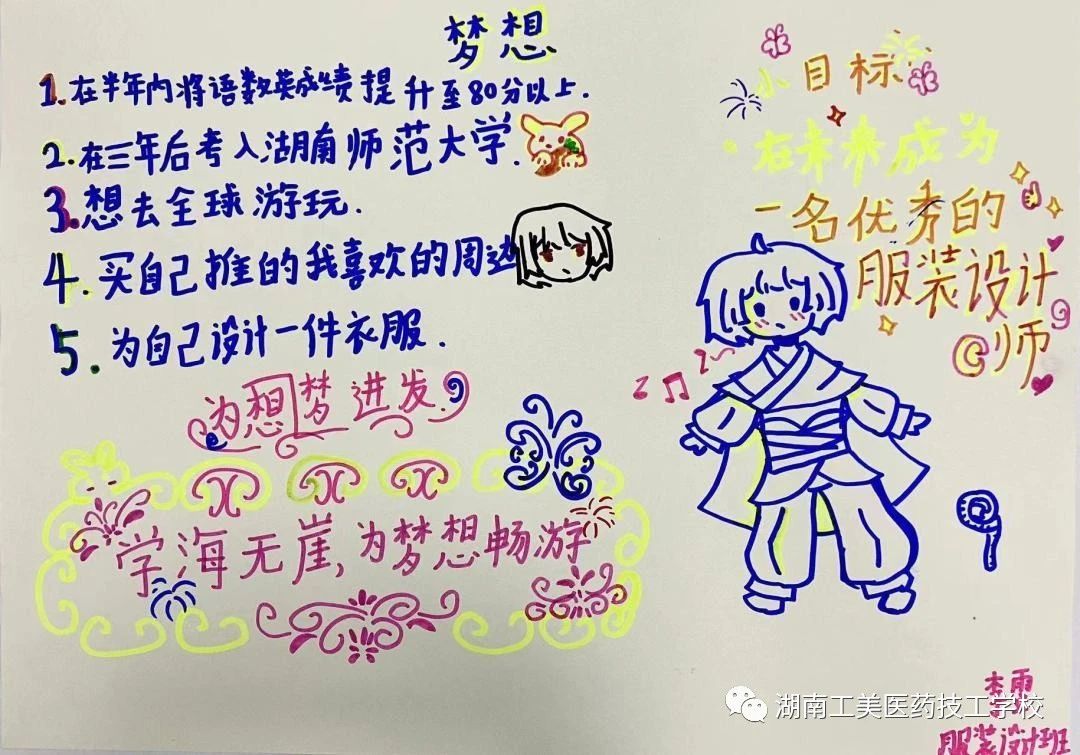 梦想
1.在半年内将语数英成绩提升至80分以上.
2.在三年后考入湖南师范大学.
3.想去全球游玩.
4.买自己推的我喜欢的周边
5.为自己设计一件衣服.
为想梦进发.
学海无崖,为梦想畅游
小目标
在未来成为
一名优秀的
服装设计
师
湖南工美医药技工学校
服装设计班